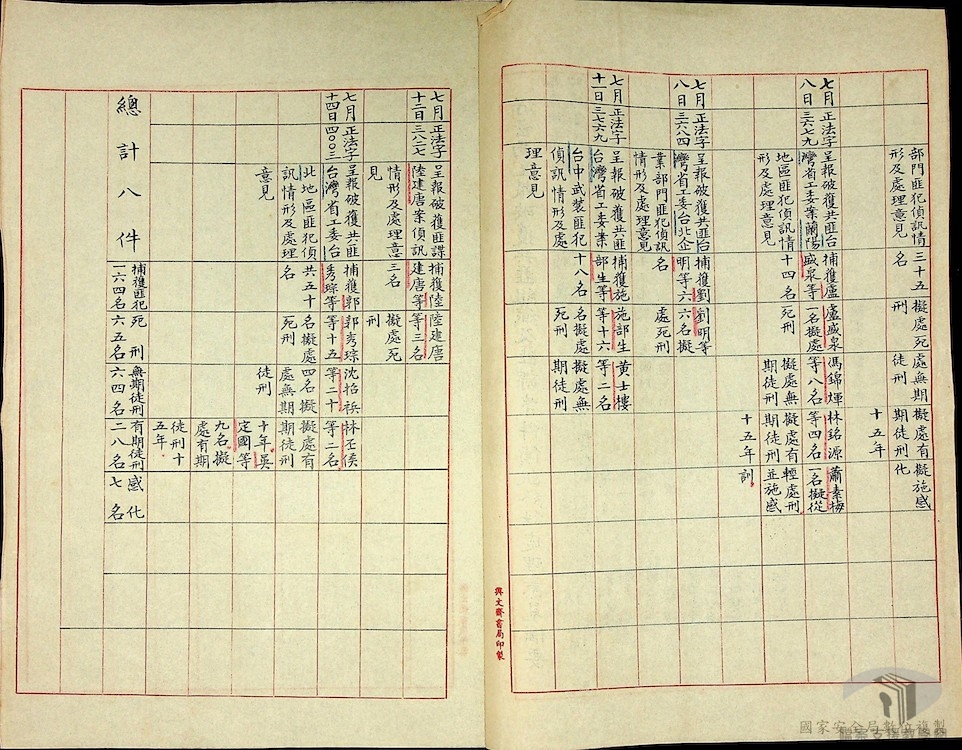 部門匪偵訊情
形及處理意見
三十五
名
擬處死
刑
處無期
徒刑
擬處有
期徒刑
十五年
擬施感
化
七月
八日
正法字
三六七九
呈報破獲共匪台
灣省工委業蘭陽
地區匪犯偵訊情
形及處理意見
捕獲盧
盛泉等
十四名
盧盛泉
等一名擬處
死刑
馮錦煇
等八名
擬處無
期徒刑
林銘源
等四名
擬處有
期徒刑
十五年
蕭素梅
一名擬從
輕處刑
並施感
訓
七月
八日
正法字
三六八四
呈報破獲共匪台
灣省工委台北企
業部門匪犯偵訊
情形及處理意見
捕獲劉
明等六
名
劉明等
六名擬
處死刑
七月
十一日
正法字
三七六九
呈報破獲共匪
台灣省工委業
台中武裝匪犯
偵訊情形及處
理意見
捕獲施
部生等
十八名
施部生
等十六
名擬處
死刑
黃士樓
等二名
擬處無
期徒刑
興文齋書局印製
七月
十二日
正法字
三八二七
呈報破獲匪諜
陸建唐案偵訊
情形及處理意
見
捕獲陸
建唐等
三名
陸建唐
等三名
擬處死
刑
七月
十四日
正法字
四〇〇三
呈報破獲共匪
台灣省工委台
北地區匪犯偵
訊情形及處理
意見
捕獲郭
秀琮等
共五十
名
郭秀琮
等十五
名擬處
死刑
等二十
四名擬
處無期
徒刑
等二名
擬處有
期徒刑
十年吳
定國等
九名擬
處有期
徒刑十
五年
總計八件
捕獲匪犯
一六四名
死刑
六五名
無期徒刑
六四名
有期徒刑
二八名
感化
七名
國家安全局數位複製